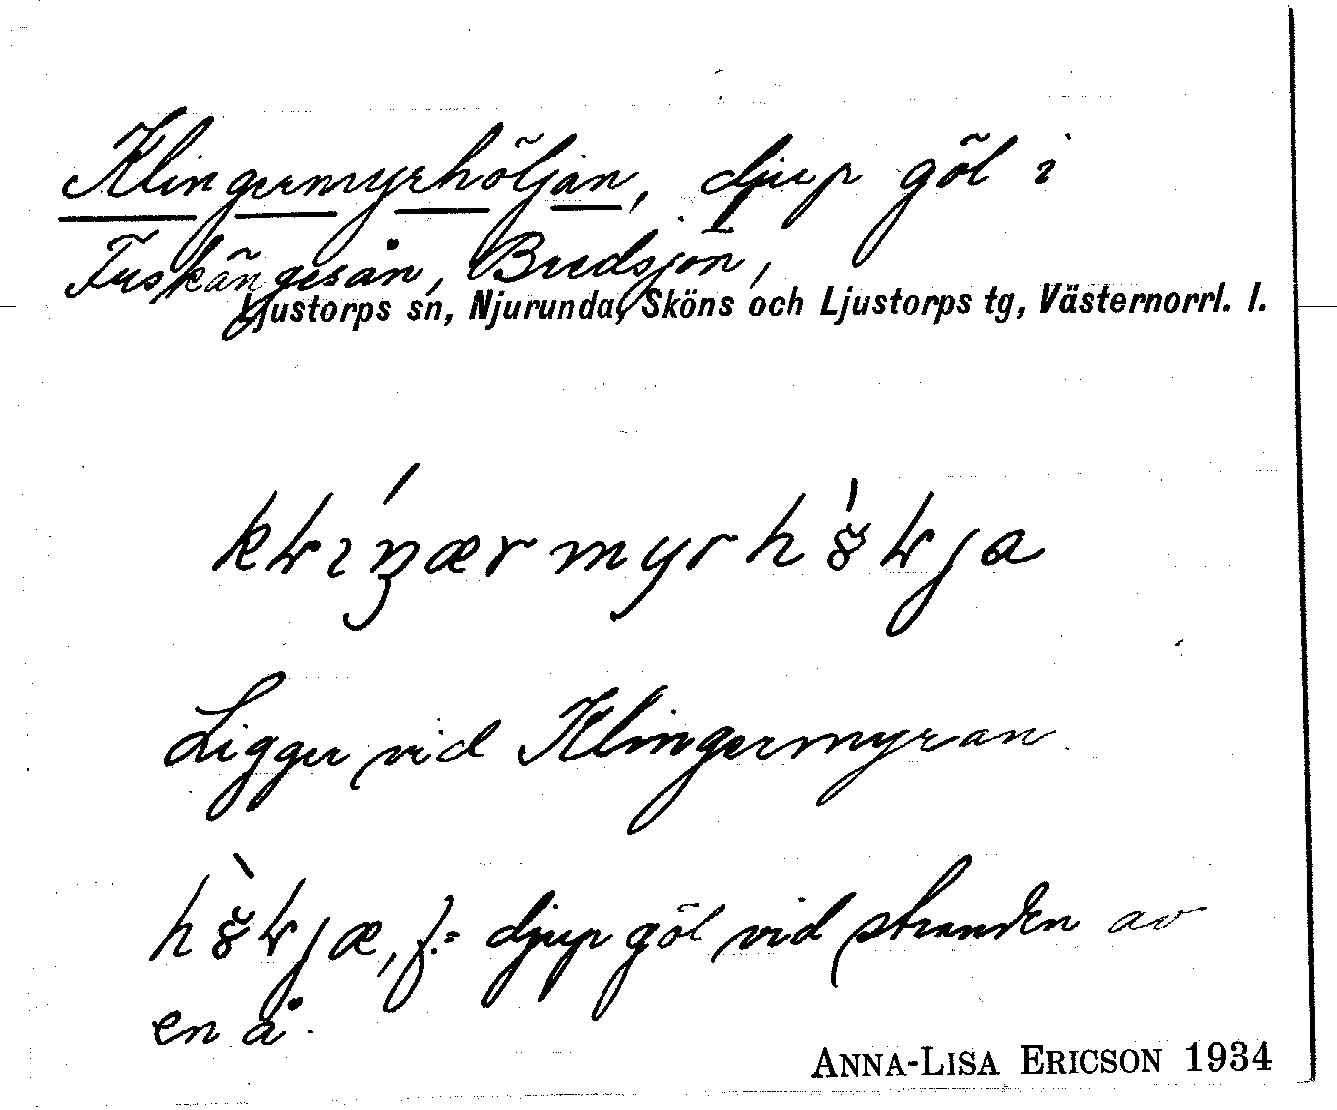 Klingermyrhöljan, djup göl i
Fuskängesån, Bredsjön,
Ljustorps sn, Njurunda, Sköns och Ljustorps tg, Västernorrl. l.
Ligger vid Klingermyran
f. = djup göl vid stranden av
en å.
ANNA-LISA ERICSON 1934